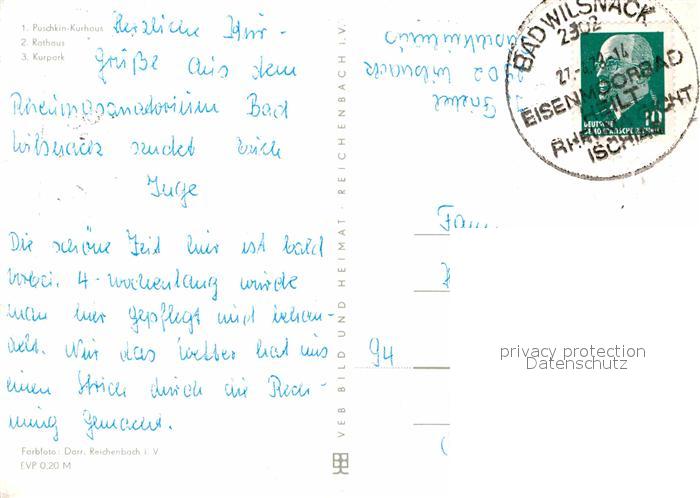 1. Puschkin-Kurhaus
2. Rathaus
3. Kurpark
Herzliche Kur-
grüße aus dem
Rheumasanatorium Bad
Wilsnack sendet Euch
Inge
Die schöne Zeit hier ist bald
vorbei. 4-wochenlang wurde
man hier gepflegt und behan-
delt. Nur das Wetter hat uns
einen Strich durch die Rech-
nung gemacht.
Farbfoto: Darr, Reichenbach i. V
EVP 0,20 M
VEB BILD UND HEIMAT · REICHENBACH I. V.
2302 Wilsnack
BAD WILSNACK
2302
EISENMOORBAD
HEILT
RHEUMA GICHT
ISCHIAS
DEUTSCHE
DEMOKRATISCHE
10
Fam
94
privacy protection
Datenschutz